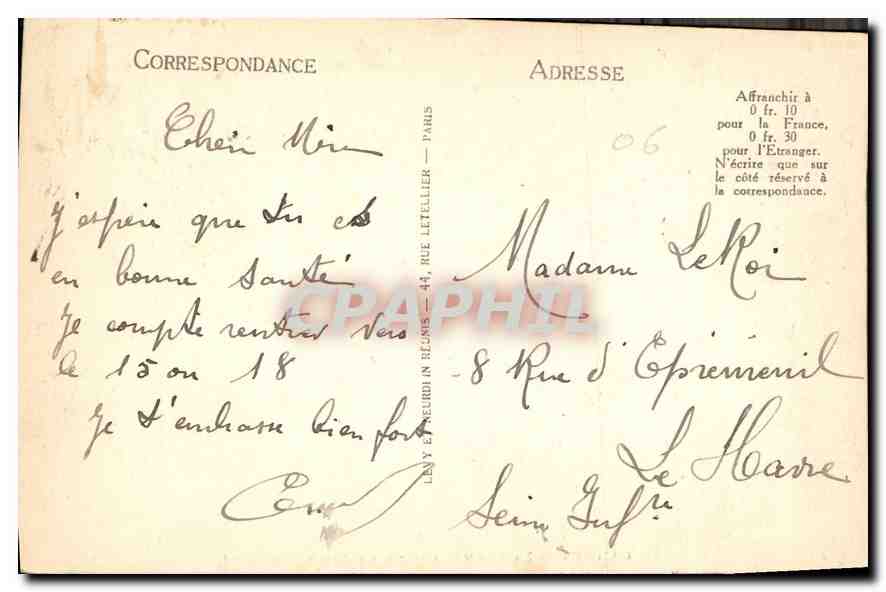 CORRESPONDANCE
ADRESSE
Affranchir à
0 fr. 10
pour la France,
0 fr. 30
pour l'Etranger.
N'écrire que sur
le côté réservé à
la correspondance.
06
Chère Mère
J'espère que tu es
en bonne santé
Je compte rentrer vers
le 15 ou 18
Je t'embrasse bien fort
LEVY ET NEURDEIN RÉUNIS — 44, RUE LETELLIER — PARIS
Madame LeRoi
8 Rue d'Epremenil
Le Havre
Seine Infre
CPAPHIL